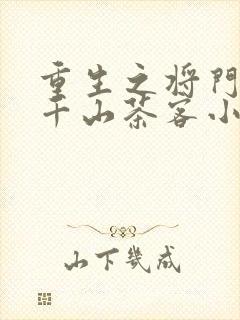 重生之将门
千山茶客小
山下几成